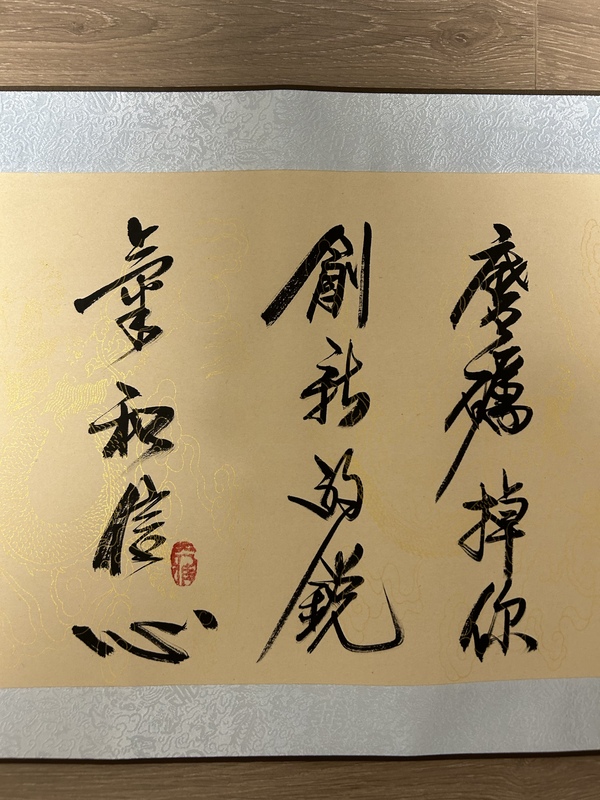 磨礪掉你
創新的銳
氣和信心